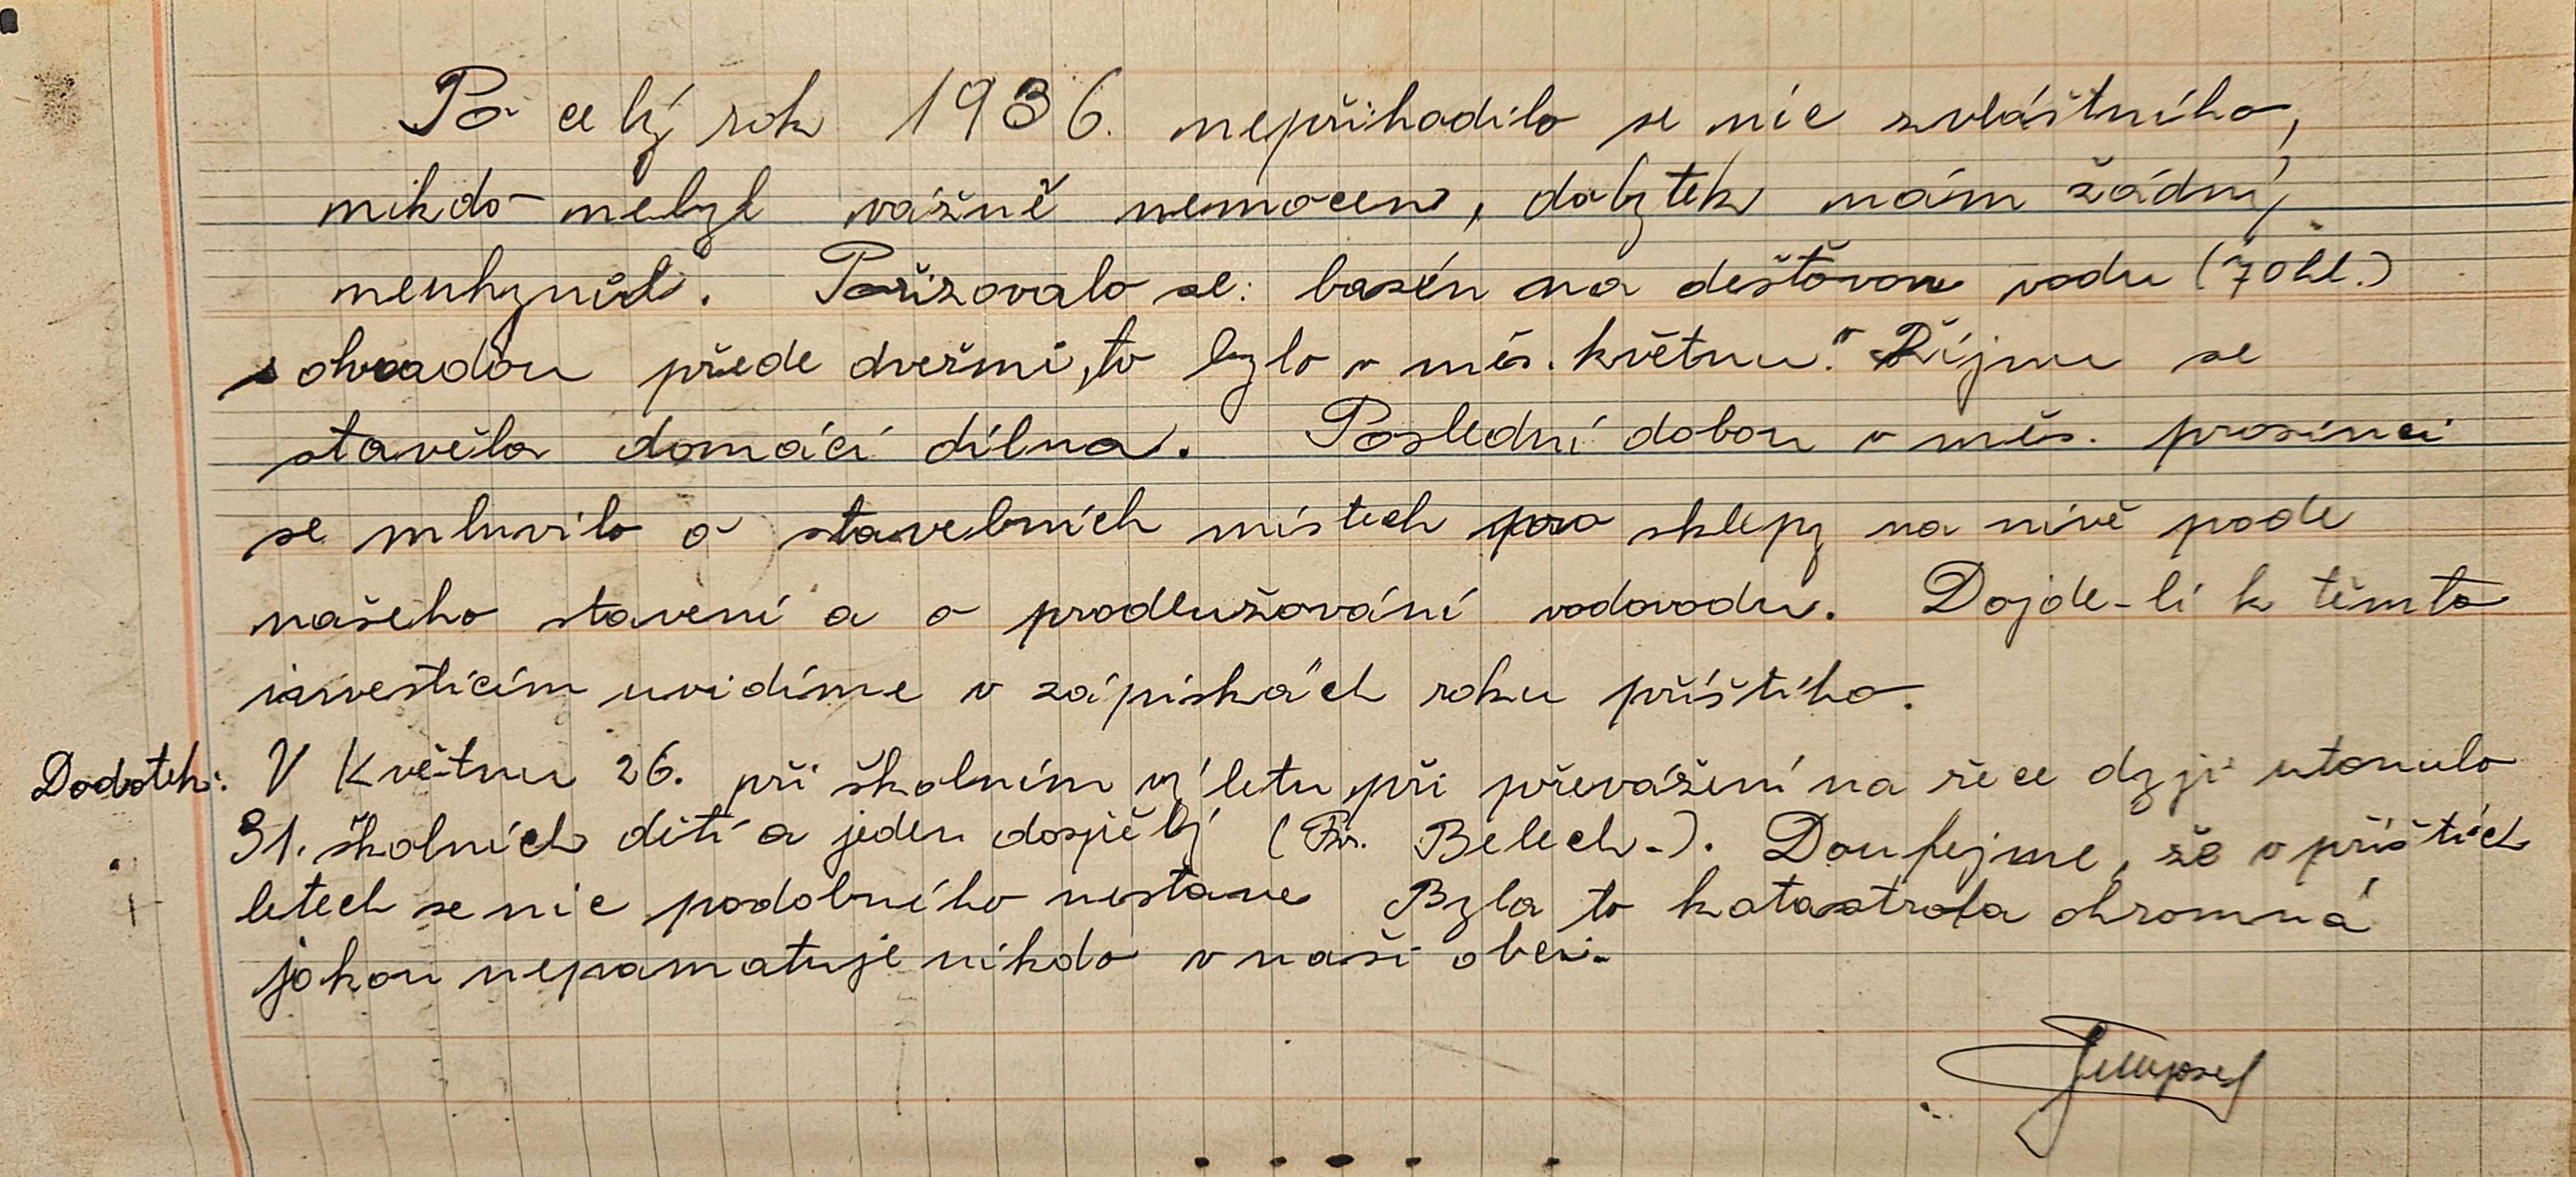 Po celý rok 1936. nepřihodilo se nic zvláštního,
nikdo nebyl vážně nemocen, dobytek nám žádný
neuhynul. Pořizovalo se: basén na dešťovou vodu (70 hl.)
s ohradou přede dveřmi, to bylo v měs. květnu. V Říjnu se
stavěla domácí dílna. Poslední dobou v měs. prosinci
se mluvilo o stavebních místech pro sklepy na nivě pode
našeho stavení a o prodlužování vodovodu. Dojde-li k těmto
investicím uvidíme v zápiskách roku příštího.
Dodatek: V Květnu 26. při školním výletu při převážení na řece dyji utonulo
31. školních dětí a jeden dospělý (Fr. Belech.). Doufejme, že v příštích
letech se nic podobného nestane Byla to katastrofa ohromná
jakou nepamatuje nikdo v naší obci.